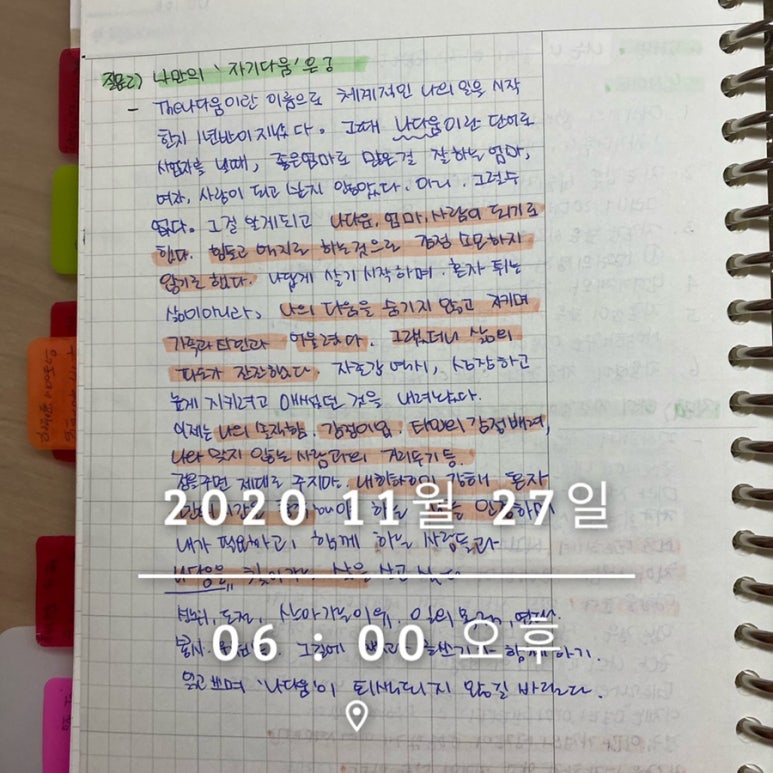 질문2) 나만의 '자기다움'은?
- The나다움이란 이름으로 체계적인 나의 일을 시작
한지 1년반이 지났다. 그때 나다움이란 단어로
사업자를 낼때, 좋은엄마로 많은걸 잘하는 엄마,
여자, 사람이 되고 싶지 않았다. 아니. 그럴수
없다. 그걸 알게되고 나다운, 엄마, 사람이 되기로
했다. 힘도로 애지로 하는것으로 감정 소모하지
않기로 했다. 나답게 살기 시작하며, 혼자 튀는
삶이아니라, 나의 다움을 숨기지 않고 지키며
가족과 타인과 어울렸다. 그랬더니 삶의
파도가 잔잔해졌다. 자존감 역시, 성장하고
높게 지키려고 애썼던 것을 내려놨다.
이제는 나의 솔직함. 감정이입. 타인의 감정배려,
나와 맞지 않는 사람과의 거리두기 등.
정을주면 제대로 주지만. 내 강해 혼자
만의 시간을 해야 하는 인정하며
내가 적응하고, 함께 하는 사람들과
나다움을 찾아가는 삶을 살고 싶다
도전, 살아가는 이유. 일의
봉사 그걸에 함께하기.
읽고쓰며 '나다움'이 퇴색되지 않길 바란다.
2020 11월 27일
06 : 00 오후